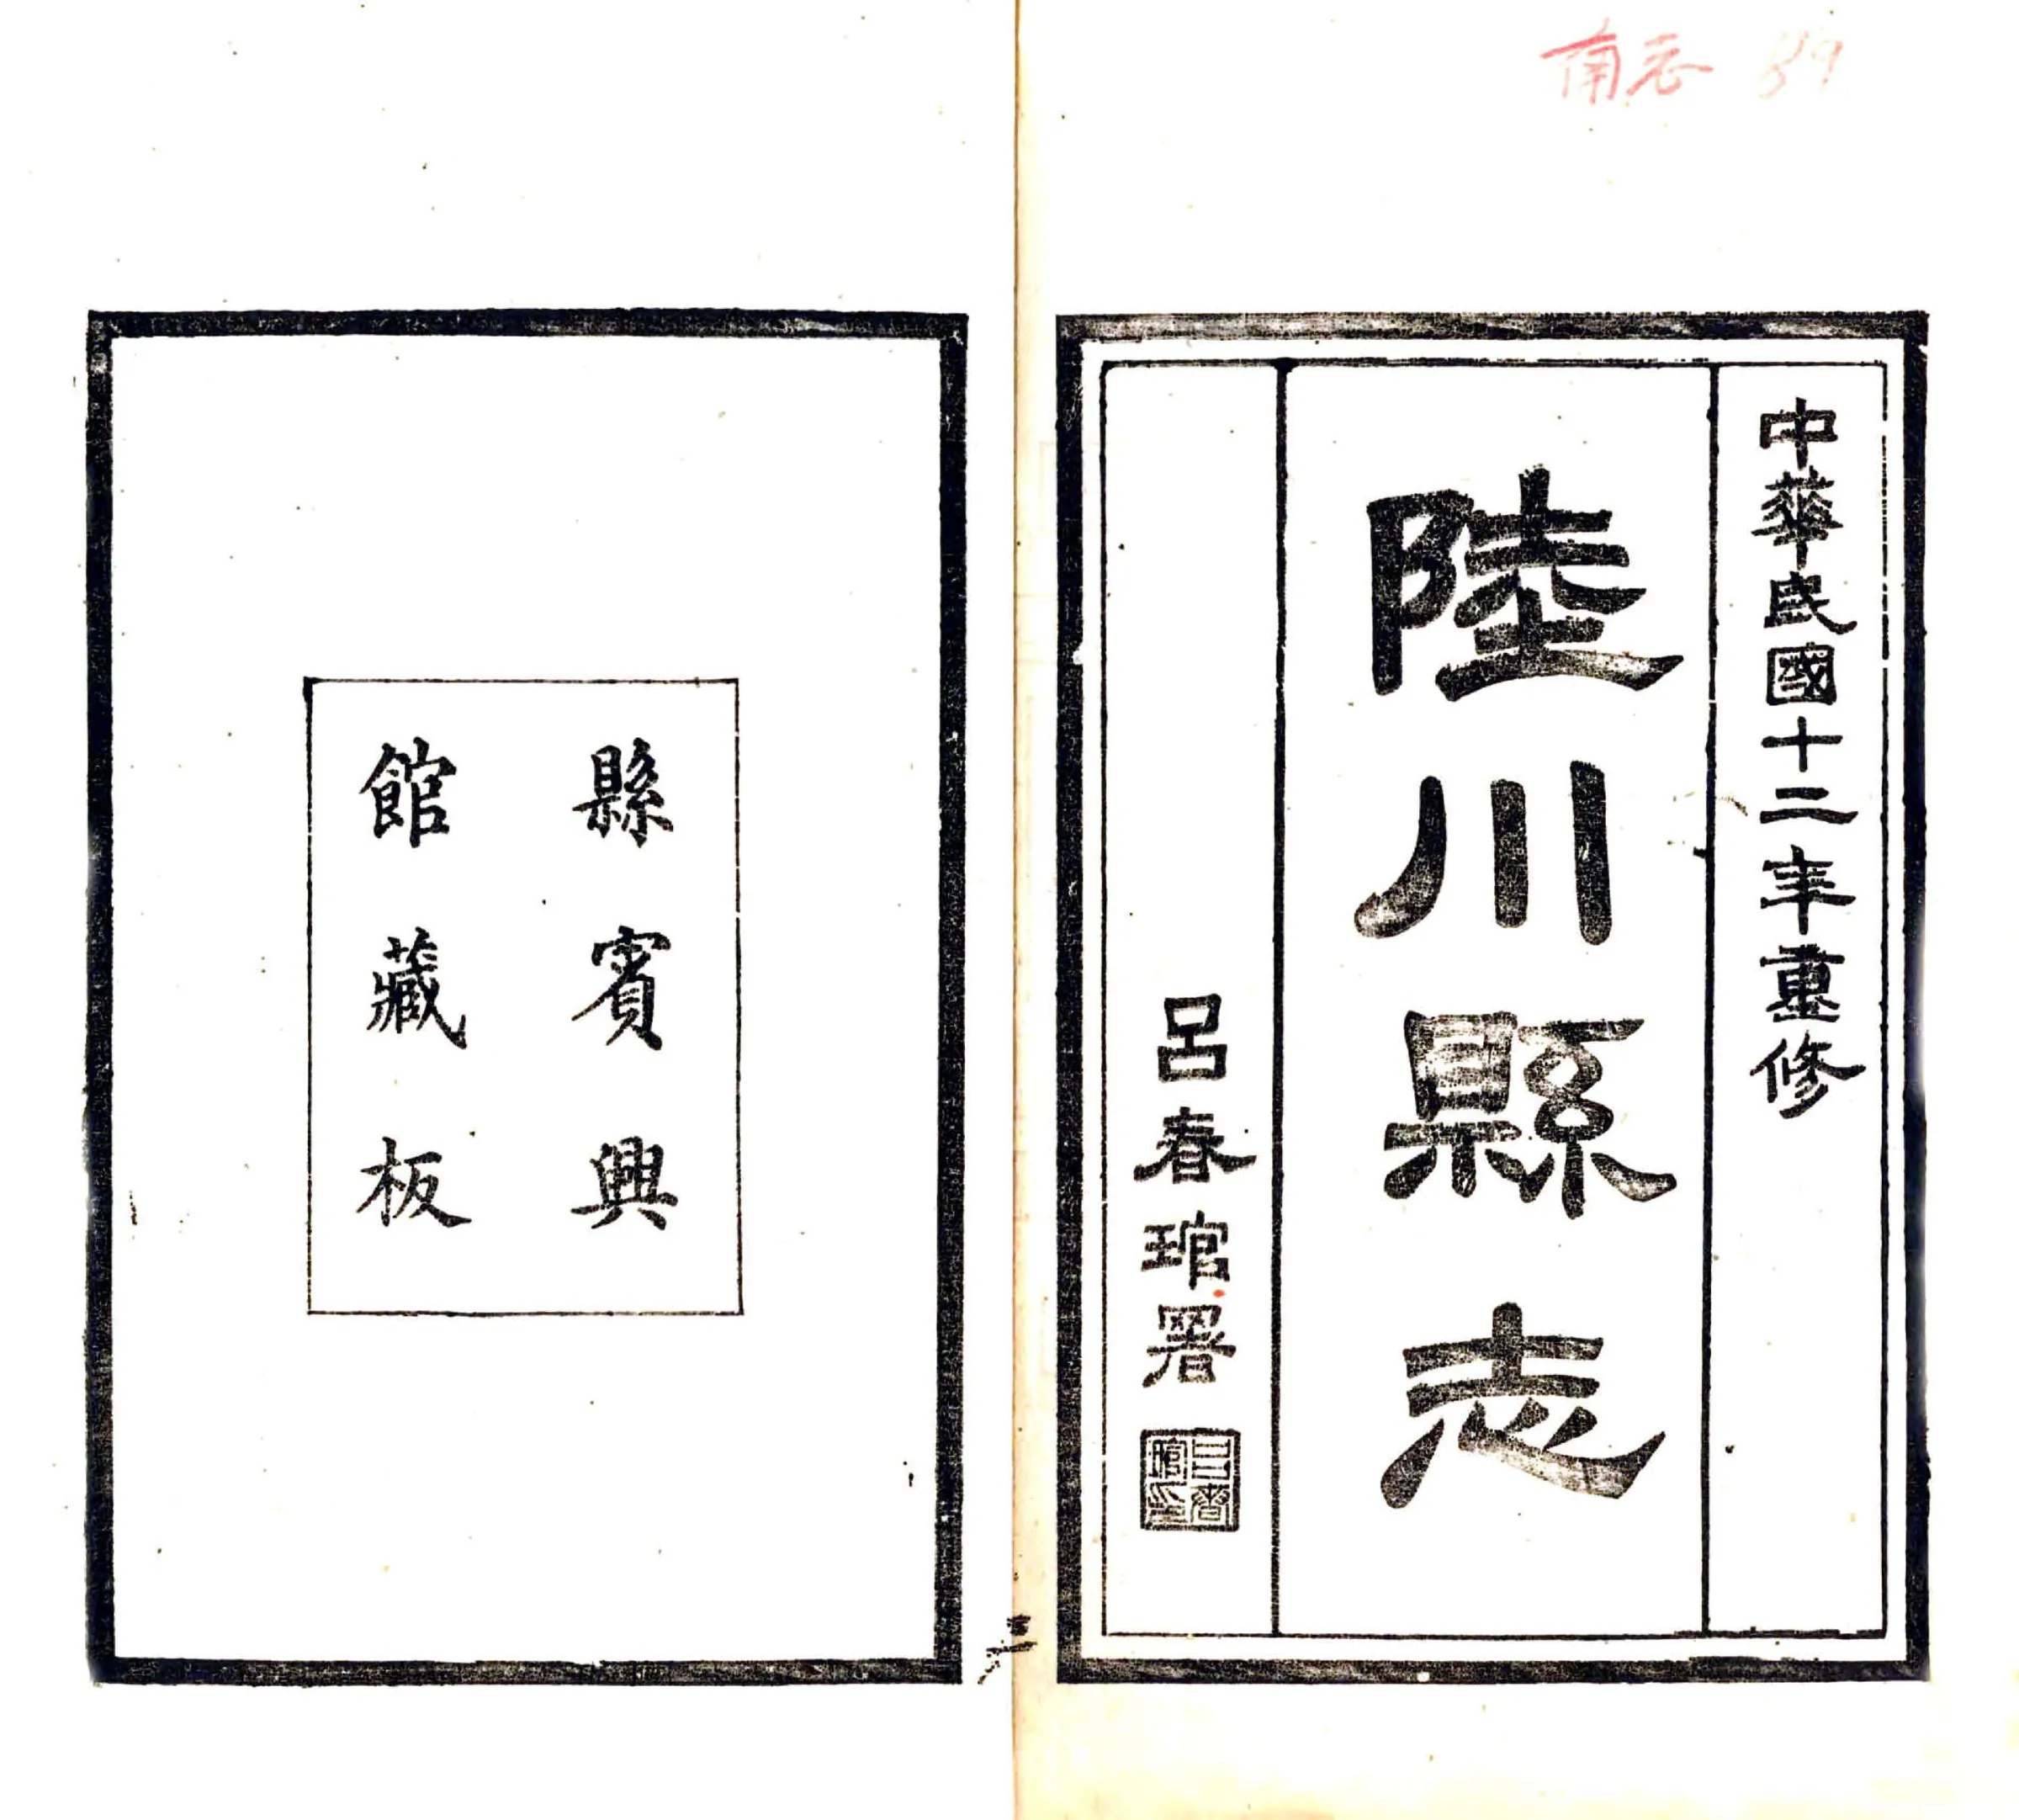 中華民國十二年重修
陸川縣志
呂春琯署
呂春
琯印
縣賓興
館藏板